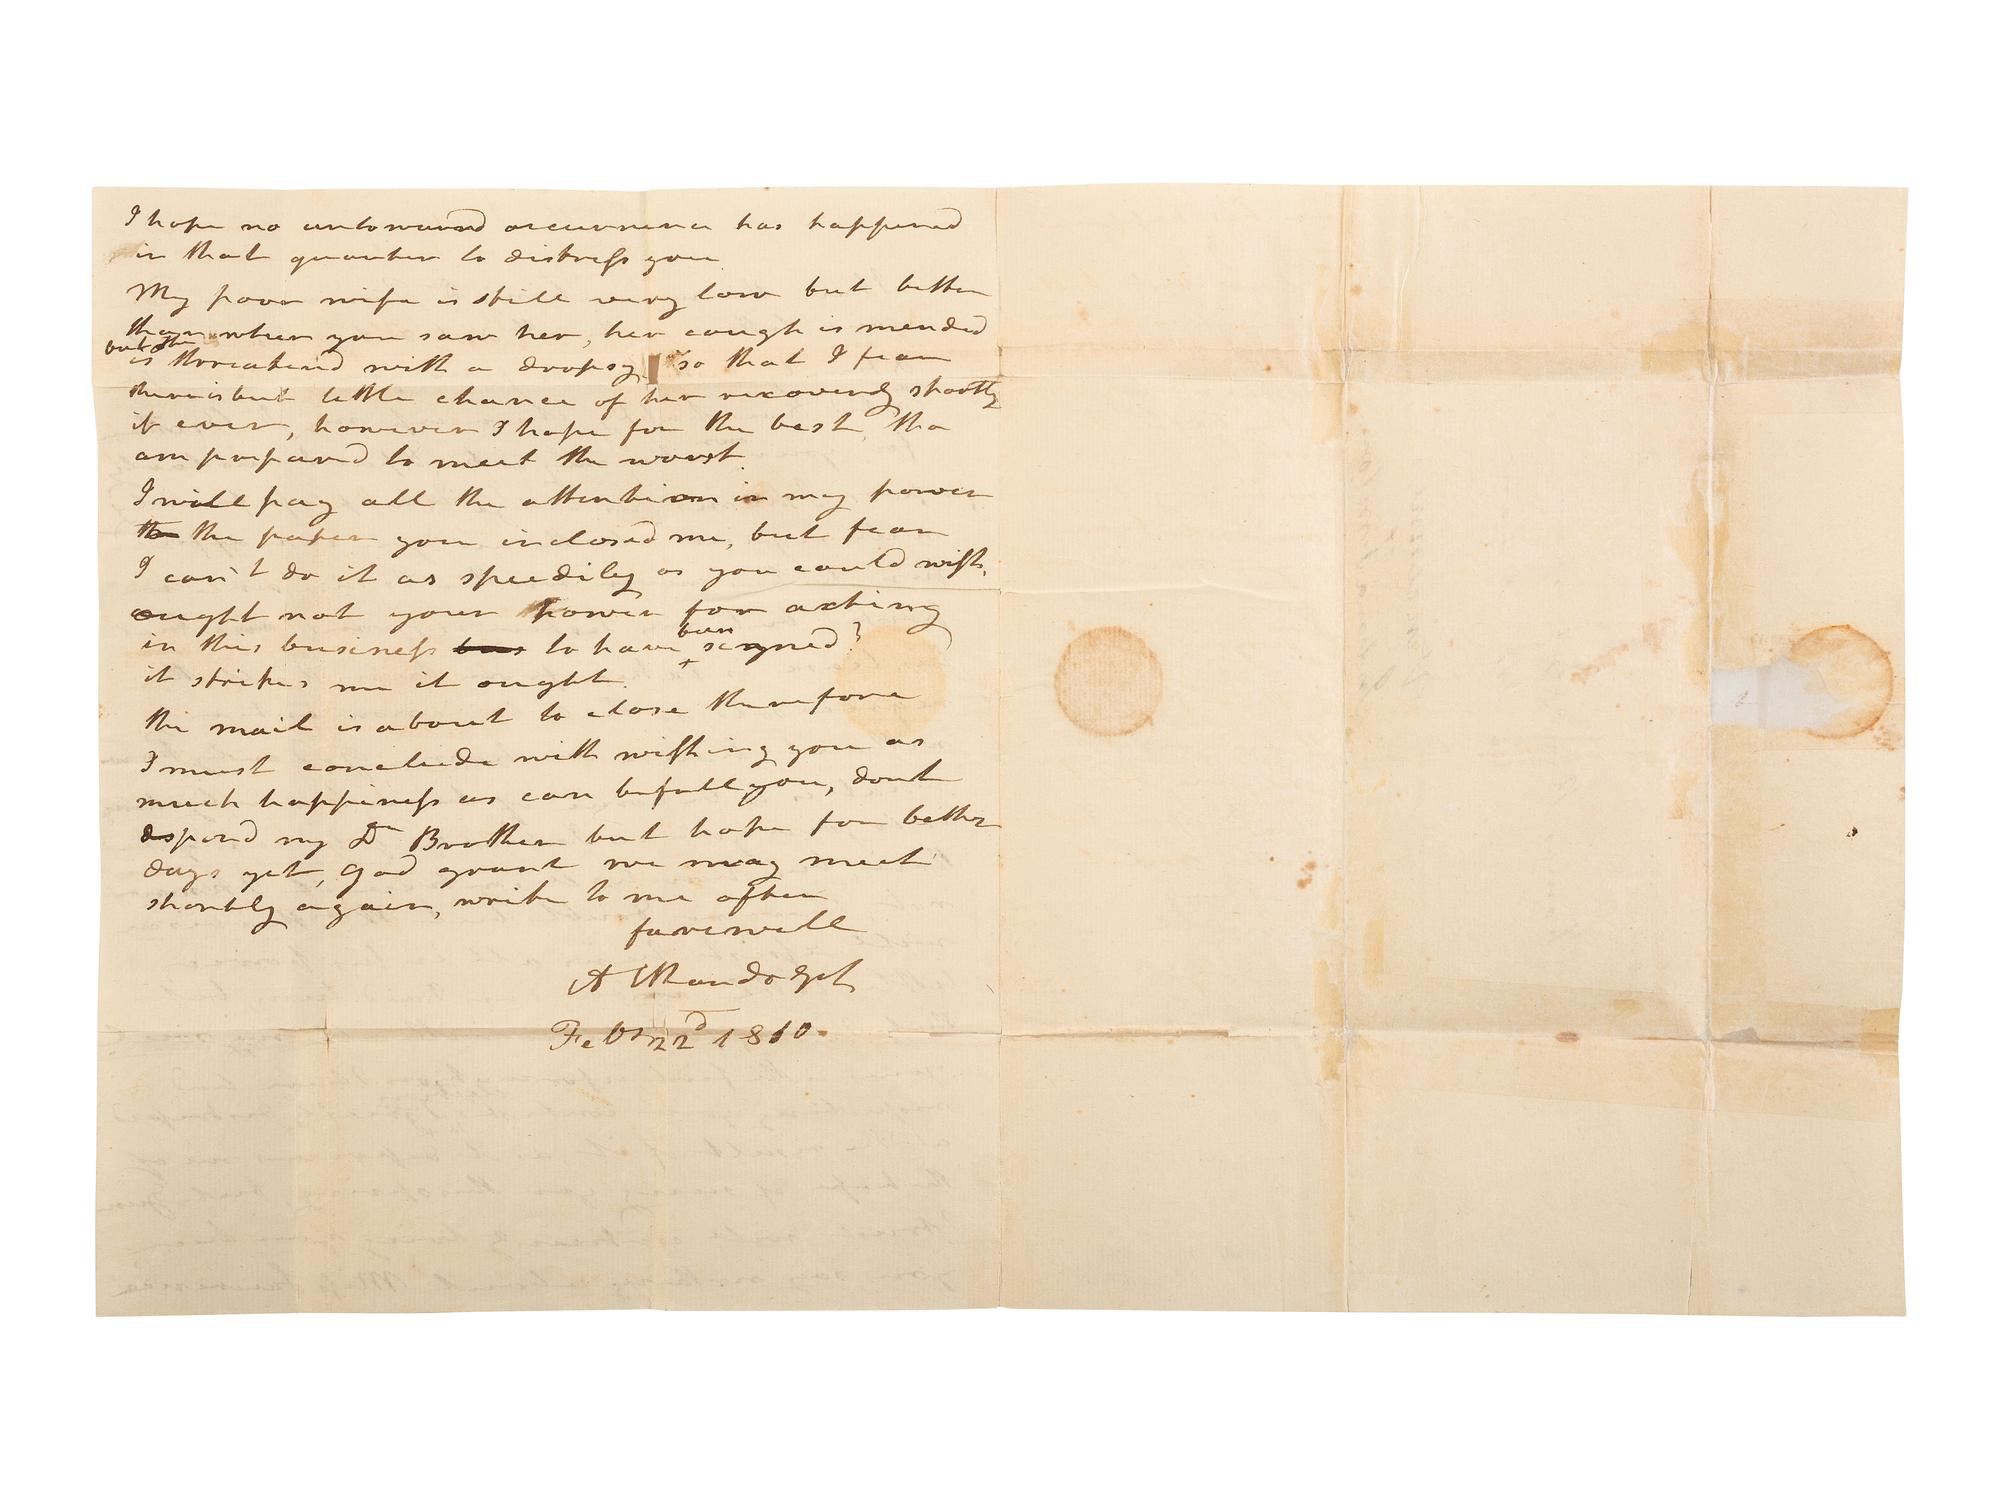 I hope no untoward occurrence has happened
in that quarter to distress you
My poor wife is still very low but better
than when you saw her, her cough is mended
but she
is threatend with a dropsy so that I fear
there is but little chance of her recoverg shortly
if ever, however I hope for the best, tho
am prepared to meet the worst.
I will pay all the attention in my power
to the paper you inclosed me, but fear
I can't do it as speedily as you could wish,
ought not your power for acting
in this business to have been signed?
it strikes me it ought.
the mail is about to close therefore
I must conclude with wishing you as
much happiness as can befall you, dont
despond my Dr Brother but hope for better
days yet, God grant we may meet
shortly again, write to me often
farewell
Randolph
Feby 22d 1810.